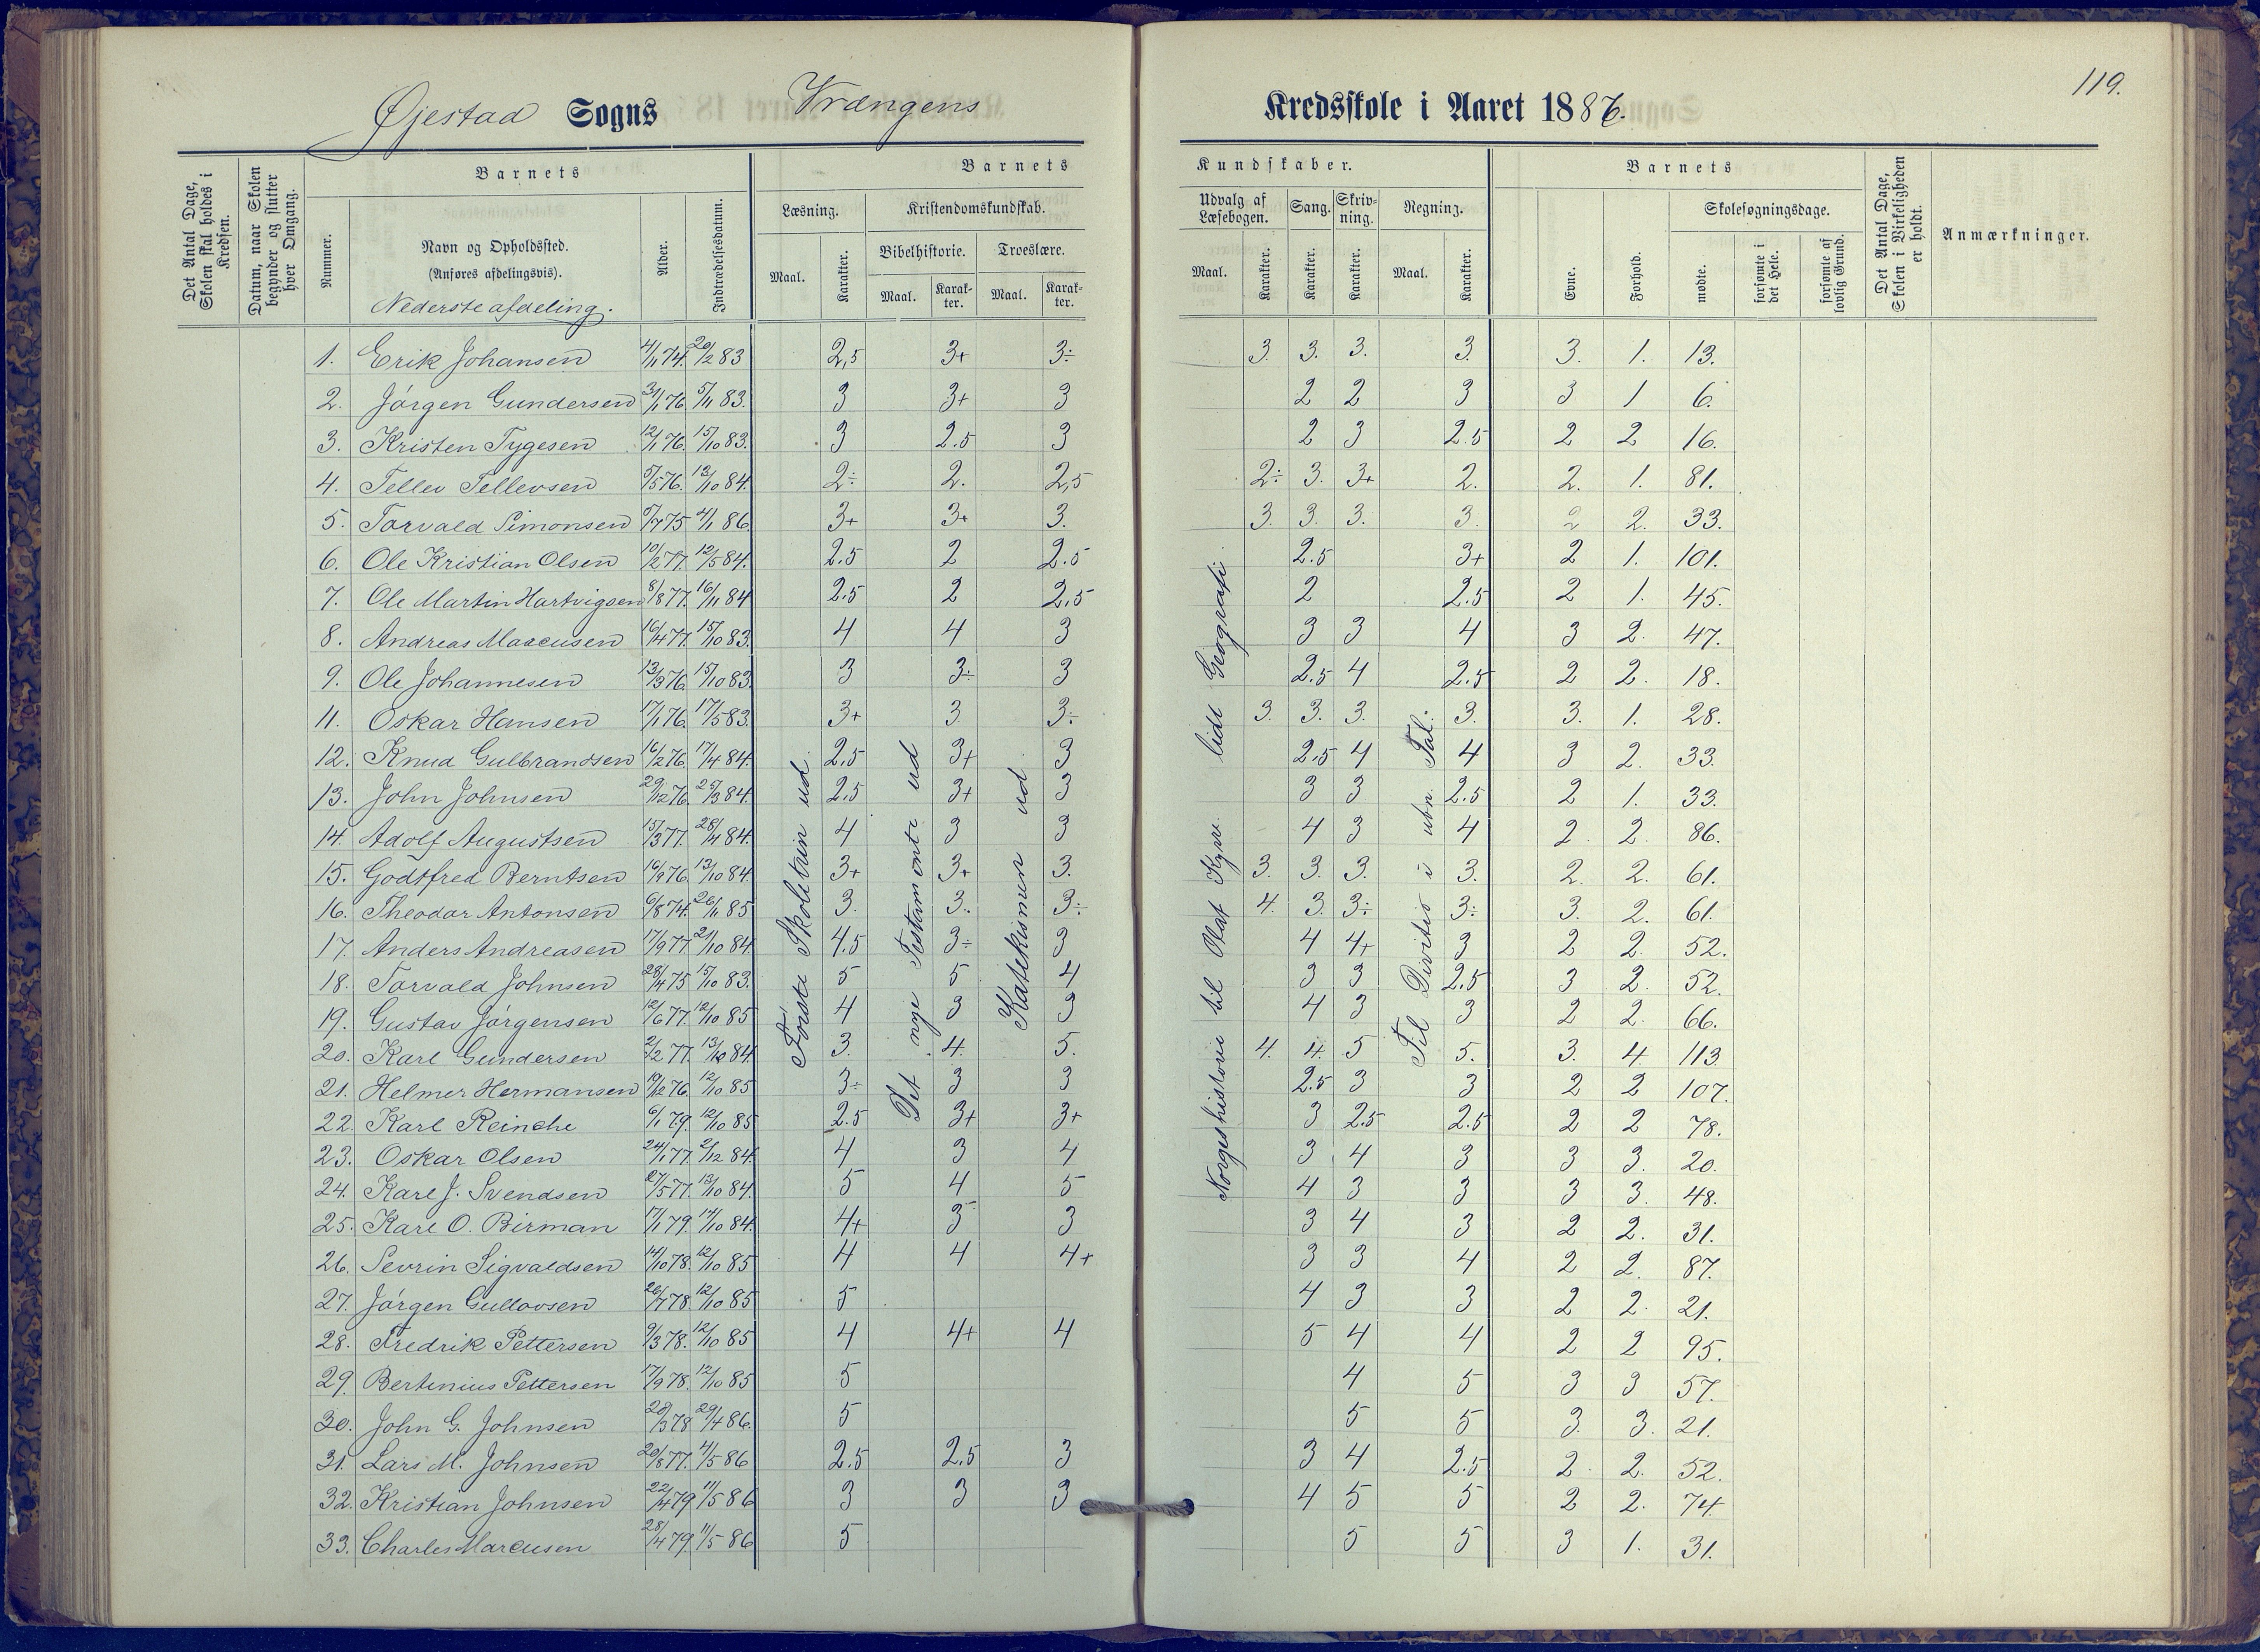 119.
Øjestad Sogns Vrængens Kredsskole i Aaret 1886.
Det Antal Dage, Skolen skal holdes i Kredsen.
Datum, naar Skolen begynder og slutter hver Omgang.
Barnets
Nummer.
Navn og Opholdssted.
(Anføres afdelingsvis).
Nederste afdeling.
Alder.
Indtrædelsesdatum.
Barnets Kundskaber.
Læsning. Kristendomskundskab.
Maal. Karakter.
Bibelhistorie. Troeslære.
Maal. Karakter. Maal. Karakter.
Udvalg af Læsebogen. Sang. Skrivning. Regning.
Maal. Karakter. Karakter. Karakter. Maal. Karakter.
Barnets
Evne. Forhold.
Skolesøgningsdage.
mødte. forsømte i det Hele. forsømte af lovlig Grund.
Det Antal Dage, Skolen i Virkeligheden er holdt.
Anmærkninger.
Første Skoletrin ud.
Det nye Testamente ud
Katekismen ud.
Norgeshistorie til Olaf Kyrre. lidt Geografi.
Til Division i ubn. Tal.
1. Erik Johansen 4/1 74. 20/2 83 2,5 3+ 3÷ 3. 3. 3. 3. 3. 1. 13.
2. Jørgen Gundersen 31/1 76. 5/11 83. 3 3+ 3 2 2 3 3 1 6.
3. Kristen Tygesen 12/1 76. 15/10 83. 3 2.5 3 2 3 2.5 2 2 16.
4. Tellev Tellevsen 5/5 76. 13/10 84. 2÷ 2. 2,5 2÷ 3. 3+ 2. 2. 1. 81.
5. Torvald Simonsen 5/7 75 4/1 86. 3+ 3+ 3. 3. 3. 3. 3. 2 2. 33.
6. Ole Kristian Olsen 10/2 77. 12/5 84. 2.5 2 2.5 2.5 3+ 2 1. 101.
7. Ole Martin Hartvigsen 8/8 77. 16/11 84 2.5 2 2,5 2 2.5 2 1. 45.
8. Andreas Marcusen 16/4 77. 15/10 83. 4 4 3 3 3 4 3 2. 47.
9. Ole Johannesen 13/3 76. 15/10 83. 3 3÷ 3 2.5 4 2.5 2 2. 18.
11. Oskar Hansen 17/1 76. 17/5 83. 3+ 3 3÷ 3. 3. 3. 3. 3. 1. 28.
12. Knud Gulbrandsen 16/2 76 17/4 84. 2.5 3+ 3 2.5 4 4 3 2. 33.
13. John Johnsen 29/12 76. 25/3 84. 2.5 3+ 3 3 3 2.5 2 1. 33.
14. Adolf Augustsen 15/3 77. 28/4 84. 4 3 3 4 3 4 2 2. 86.
15. Godtfred Berntsen 16/9 76. 13/10 84. 3+ 3+ 3. 3. 3. 3. 3. 2. 2. 61.
16. Theodor Antonsen 6/8 74. 26/11 85 3. 3. 3÷ 4. 3. 3÷ 3÷ 3. 2. 61.
17. Anders Andreasen 17/9 77. 21/10 84 4.5 3÷ 3 4 4+ 3 2 2. 52.
18. Torvald Johnsen 28/4 75 15/10 83. 5 5 4 3 3 2.5 3 2. 52.
19. Gustav Jørgensen 12/6 77. 12/10 85 4 3 3 4 3 3 2 2. 66.
20. Karl Gundersen 2/2 77. 13/10 84. 3. 4. 5. 4. 4. 5 5. 3. 4 113.
21. Helmer Hermansen 19/12 76. 12/10 85 3÷ 3 3 2.5 3 3 2 2 107.
22. Karl Reinche 6/1 79. 12/10 85 2.5 3+ 3+ 3 2.5 2.5 2 2 78.
23. Oskar Olsen 24/1 77. 2/12 84. 4 3 4 3 4 3 3 3. 20.
24. Karl J. Svendsen 27/5 77. 13/10 84. 5 4 5 4 3 3 3 3. 48.
25. Karl O. Birman 17/1 79. 14/10 84. 4+ 3 3 3 4 3 2 2. 31.
26. Sevrin Sigvaldsen 14/10 78. 12/10 85 4 4 4+ 3 3 4 2 2. 87.
27. Jørgen Gullovsen 26/7 78. 12/10 85 5 4 3 3 2 2. 21.
28. Fredrik Pettersen 9/3 78. 12/10 85 4 4+ 4 5 4 4 2 2 95.
29. Bertinius Pettersen 17/9 78. 12/10 85 5 4 5 3 3 57.
30. John G. Johnsen 28/3 78 29/4 86. 5 5 5 3. 3. 21.
31. Lars M. Johnsen 20/8 77. 4/5 86 2.5 2.5 3 3 4 2.5 2 2. 52.
32. Kristian Johnsen 22/4 79 11/5 86 3 3 3 4 5 5 2 2. 74.
33. Charles Marcusen 28/4 79. 11/5 86 5 5 5 3 1. 31.